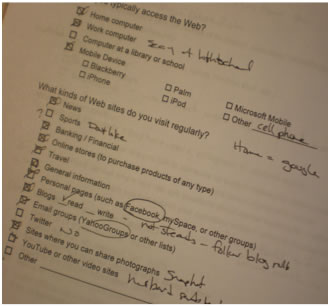 typically access the Web?
Home computer
Work computer
Computer at a library or school
Mobile Device
Blackberry
Palm
Microsoft Mobile
iPhone
iPod
Other cell phone
What kinds of Web sites do you visit regularly?
Home = google
News
? Sports Don't like
Banking / Financial
Online stores (to purchase products of any type)
Travel
General information
Personal pages (such as Facebook, mySpace, or other groups)
Blogs read write - not steady - follow blog
Email groups (YahooGroups or other lists)
Twitter no
Sites where you can share photographs
YouTube or other video sites husband
Other